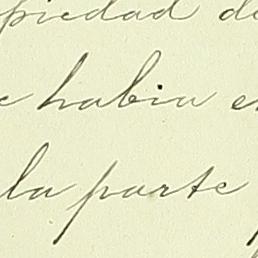 piedad de
e habia e
la parte